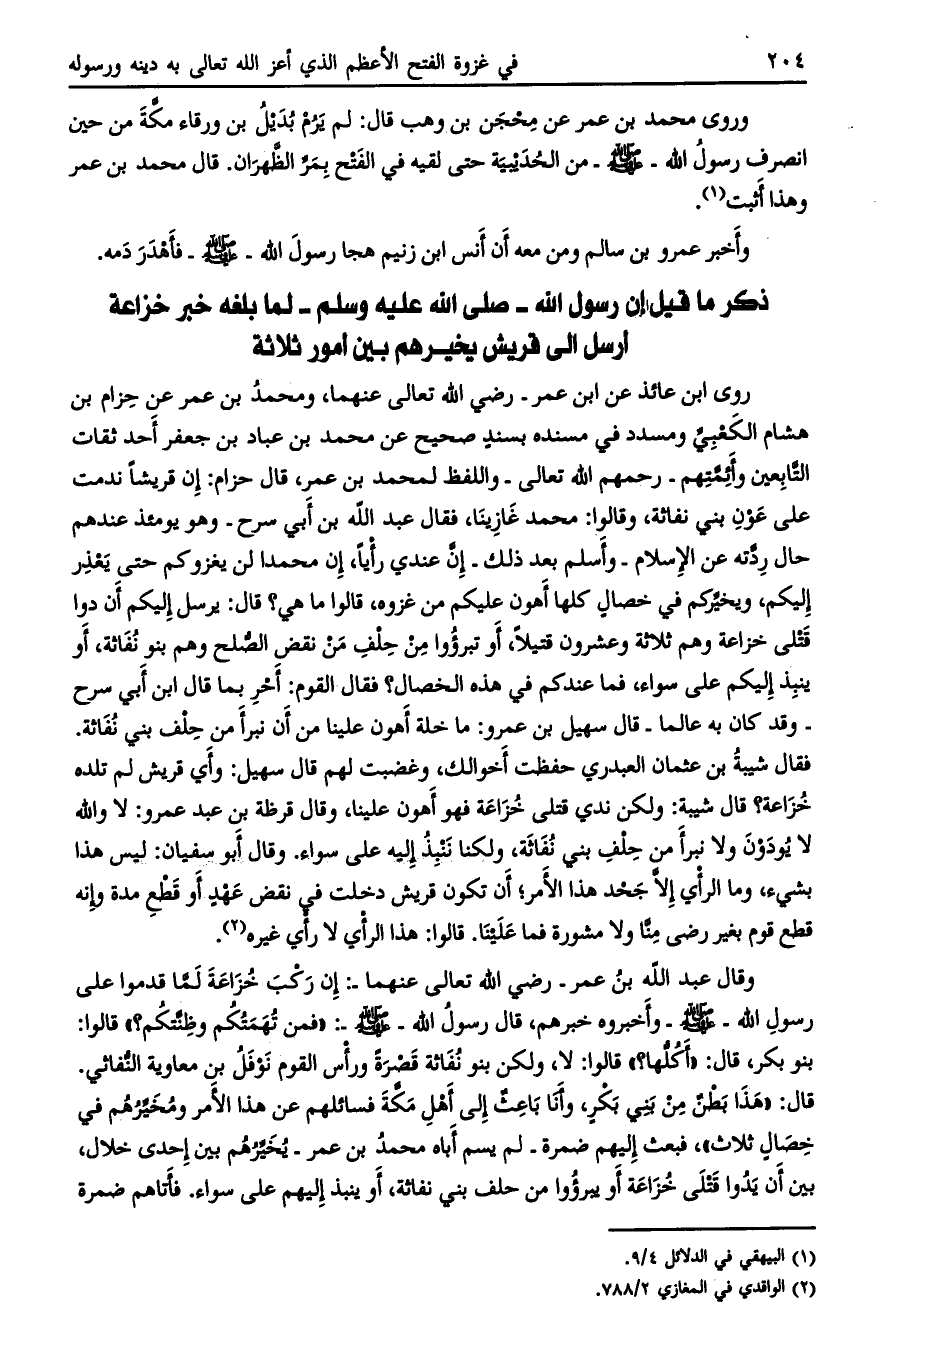 ٢٠٤ في غزوة الفتح الأعظم الذي أعز الله تعالى به دينه ورسوله
وروى محمد بن عمر عن مِحْجَن بن وهب قال: لم يَرُمْ بُدَيْلُ بن ورقاء مكَّةَ من حين
انصرف رسولُ الله ـ ﷺ ـ من الحُدَيْبِيَة حتى لقيه في الفَتْح بِمَرِّ الظَّهرَان. قال محمد بن عمر
وهذا أَثبت(١).
وأَخبر عمرو بن سالم ومن معه أَن أَنس ابن زنيم هجا رسولَ الله ـ ﷺ ـ فأَهْدَرَ دَمه.
ذكر ما قيل إن رسول الله ـ صلى الله عليه وسلم ـ لما بلغه خبر خزاعة
أرسل الى قريش يخيرهم بين أمور ثلاثة
روى ابن عائذ عن ابن عمر ـ رضي الله تعالى عنهما، ومحمدُ بن عمر عن حِزام بن
هشام الكَعْبِيِّ ومسدد في مسنده بسندٍ صحيح عن محمد بن عباد بن جعفر أَحد ثقات
التَّابعين وأَئِمَّتِهم ـ رحمهم الله تعالى ـ واللفظ لمحمد بن عمر، قال حزام: إن قريشاً ندمت
على عَوْنِ بني نفاثة، وقالوا: محمد غَازِينَا، فقال عبد اللّه بن أَبي سرح ـ وهو يومئذ عندهم
حال رِدَّته عن الإِسلام ـ وأَسلم بعد ذلك ـ إنَّ عندي رأْياً، إن محمدا لن يغزوكم حتى يَعْذِر
إليكم، ويخيِّركم في خصالٍ كلها أَهون عليكم من غزوه، قالوا ما هي؟ قال: يرسل إليكم أَن دوا
قَتْلى خزاعة وهم ثلاثة وعشرون قتيلاً، أَو تبرؤُوا مِنْ حِلْفِ مَنْ نقض الصُّلح وهم بنو نُفَاثة، أَو
ينبِذ إليكم على سواء، فما عندكم في هذه الخصال؟ فقال القوم: أَحْرِ بما قال ابن أَبي سرح
ـ وقد كان به عالما ـ قال سهيل بن عمرو: ما خلة أَهون علينا من أَن نبرأَ من حِلْف بني نُفَاثة.
فقال شيبةُ بن عثمان العبدري حفظت أَخوالك، وغضبت لهم قال سهيل: وأَي قريش لم تلده
خُزَاعة؟ قال شيبة: ولكن ندي قتلى خُزَاعَة فهو أَهون علينا، وقال قرظة بن عبد عمرو: لا والله
لا يُودَوْنَ ولا نبرأَ من حِلْفِ بني نُفَاثة، ولكنا نَنْبِذُ إليه على سواء. وقال أَبو سفيان: ليس هذا
بشيء، وما الرأْي إلاَّ جَحْد هذا الأمر؛ أَن تكون قريش دخلت في نقض عَهْدٍ أَو قَطْعِ مدة وإنه
قطع قوم بغير رضى مِنَّا ولا مشورة فما عَلَيْنَا. قالوا: هذا الرأْي لا رأْي غيره(٢).
وقال عبد اللّه بنُ عمر ـ رضي الله تعالى عنهما ـ: إن رَكْبَ خُزَاعَةَ لَمَّا قدموا على
رسولِ الله ـ ﷺ ـ وأَخبروه خبرهم، قال رسولُ الله ـ ﷺ ـ: «فمن تُهَمَتُكُم وظِنَّتكُم؟» قالوا:
بنو بكر، قال: «أَكُلُّها؟» قالوا: لا، ولكن بنو نُفَاثة قَصْرَةً ورأْس القوم نَوْفَلُ بن معاوية النُّفاثي.
قال: «هَذَا بَطْنٌ مِنْ بَنِي بَكْرٍ، وأَنَا بَاعِثٌ إلى أَهْلِ مَكَّةَ فسائلهم عن هذا الأمر ومُخَيِّرُهُم في
خِصَالٍ ثلاث»، فبعث إليهم ضمرة ـ لم يسم أَباه محمدُ بن عمر ـ يُخَيِّرُهُم بين إحدى خلال،
بين أَن يَدُوا قَتْلَى خُزَاعَة أَو يبرؤُوا من حلف بني نفاثة، أَو ينبذ إليهم على سواء. فأَتاهم ضمرة
(١) البيهقي في الدلائل ٩/٤.
(٢) الواقدي في المغازي ٧٨٨/٢.